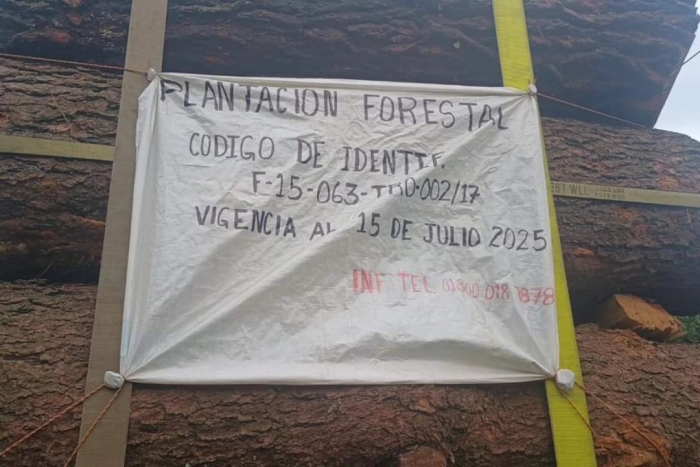 PLANTACION FORESTAL
CODIGO DE IDENTIF.
F-15-063-TDO-002/17
VIGENCIA AL 15 DE JULIO 2025
INF TEL. 01800 018 1878